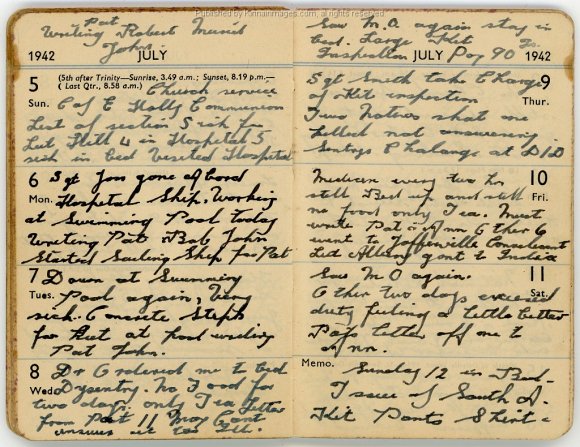 Published by Kinnairimages.com, all rights reserved
Pat
Writing Robert
John
1942 JULY
5 (5th after Trinity—Sunrise, 3.49 a.m.; Sunset, 8.19 p.m.—
( Last Qtr., 8.58 a.m.) Church service
Sun. C of E Holy Communion
Lest of section 5 sick
Lut Hill 4 in Hospital 5
sick in bed Visited Hospital
6 Sgt gone aboard
Mon. Hospital Ship. Working
at Swimming Pool today
Writing Pat Bob John
Started Sailing Ship for Pat
7 Down at Swimming
Tues. Pool again, Very
sick. Steps
for Hut at pool writing
Pat John.
8 Dr Ordered me to bed
Wed. Dysentry. No Food for
two days only Tea Letter
from Pat 11 May Cant
answer it
Saw M.O again stay in
bed. Large Kit
Inspection
JULY Pay 90 1942
Sgt Smith take Charge
9
of Kit inspection
Thur.
Two Natives shot one
killed not answering
Sentrys Chalange at D.I.D
Medicin every two hr
10
still Bed up and still
Fri.
no food only Tea. Must
write Pat & Ann Other 6
went to
Led gont to India
Saw M O again.
11
Other two days excused
Sat.
duty feeling a little better
Pats letter off one to
Ann.
Memo. Sunday 12 in Bed.
Issue of South A.
Kit Pants Shirt